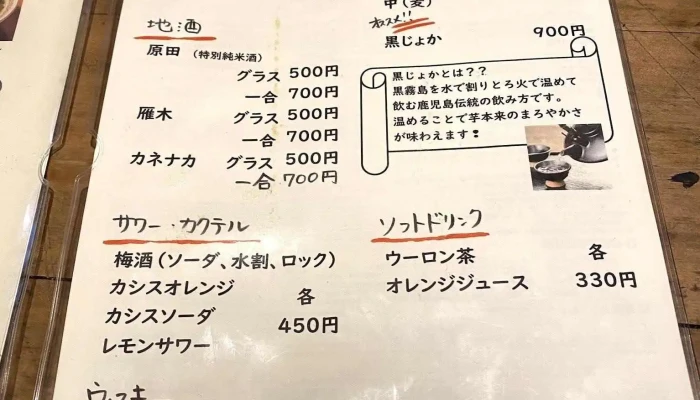 地酒
原田（特別純米酒）
グラス 500円
一合 700円
雁木 グラス 500円
一合 700円
カネナカ グラス 500円
一合 700円
サワー・カクテル
梅酒（ソーダ、水割、ロック）
カシスオレンジ
カシスソーダ
レモンサワー
各
450円
（麦）
オススメ!!
黒じょか 900円
黒じょかとは？？
黒霧島を水で割りとろ火で温めて
飲む鹿児島伝統の飲み方です。
温めることで芋本来のまろやかさ
が味わえます❢
ソフトドリンク
ウーロン茶
オレンジジュース
各
330円